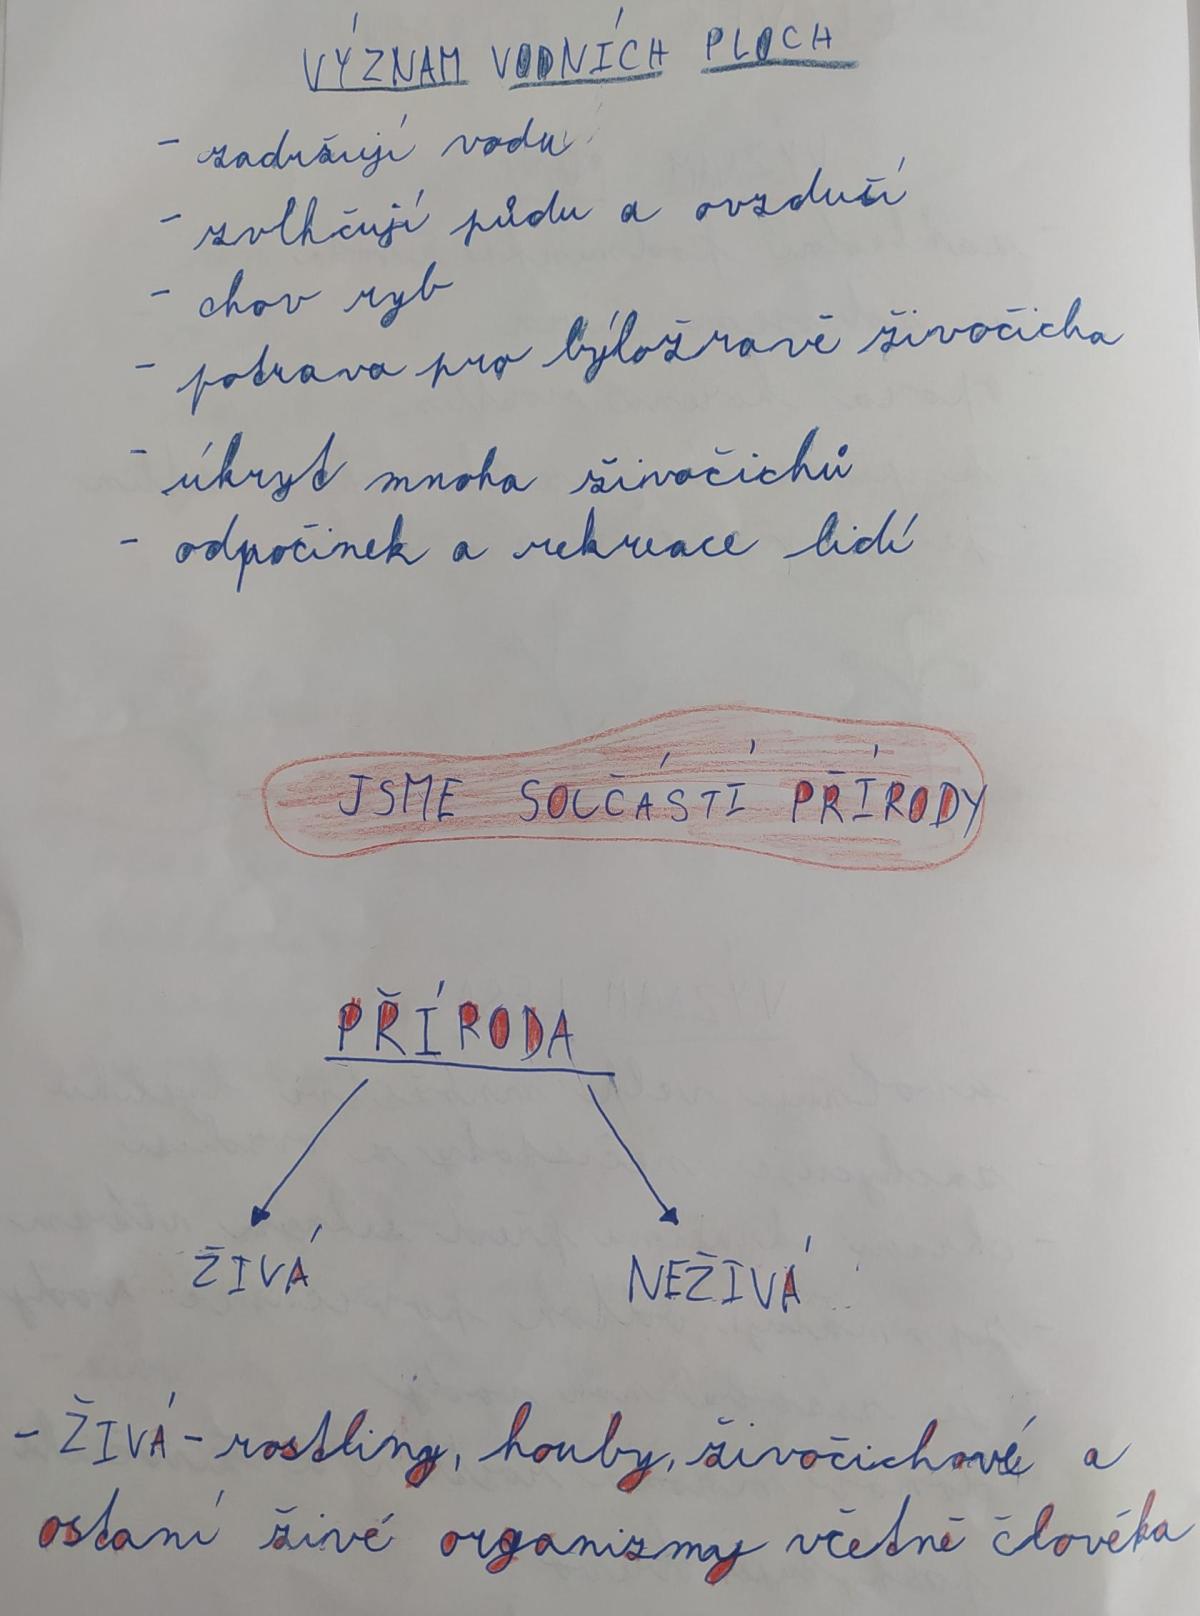 VÝZNAM VODNÍCH PLOCH
- zadržují vodu
- zvlhčují půdu a ovzduší
- chov ryb
- potrava pro býložravě živočicha
- úkryt mnoha živočichů
- odpočinek a rekreace lidí
JSME SOUČÁSTÍ PŘÍRODY
PŘÍRODA
ŽIVÁ NEŽIVÁ
- ŽIVÁ - rostliny, houby, živočichové a
ostaní živé organizmy včetně člověka